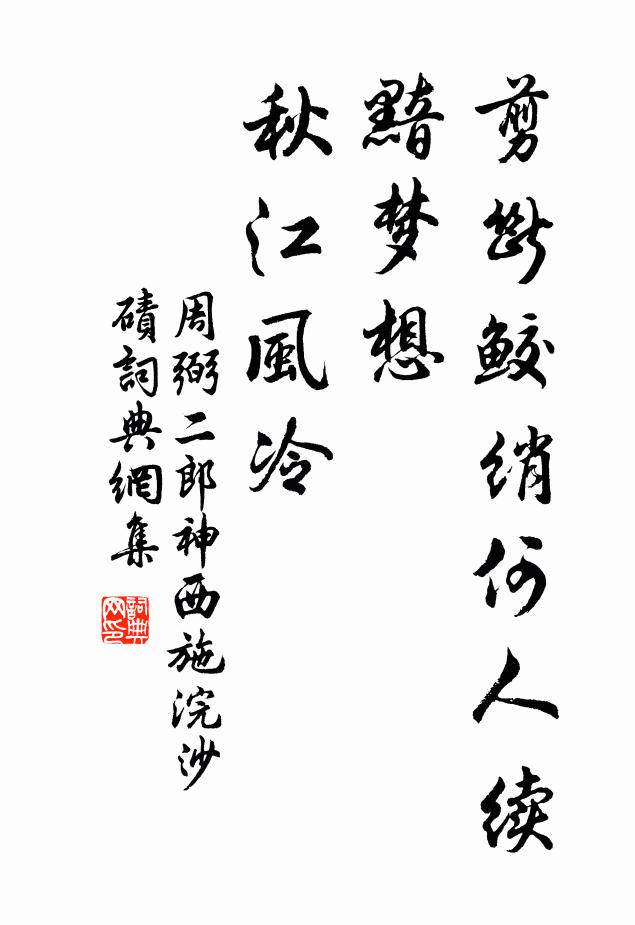 剪断鮫绡何人续
黯梦想
秋江風冷
周弼二郎神西施浣沙
磧詞典網集
詞典
网印